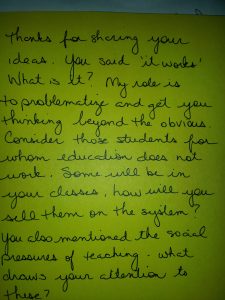 Thanks for sharing your
ideas. You said 'it works'
What is it? My role is
to problematize and get you
thinking beyond the obvious.
Consider those students for
whom education does not
work. Some will be in
your classes, how will you
sell them on the system?
You also mentioned the social
pressures of teaching. What
draws your attention to
these?